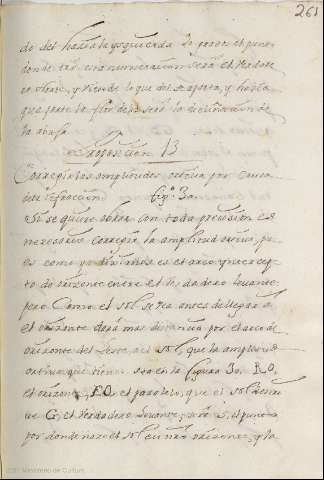 261
do del hacia la ysquierda los grados, el punto
donde tal enumeracion será el verdade
ro Norte, y siendo lo que del Sa, y hasta
que parte la flor de Lis será la declinacion de
la abuja.
Exposicion 13
Corregir las amplitudes ortiva por causa
de la refraccion. Figª. 3a.
Si se quiere obrar con toda precision es
necesario corregir la amplitud ortiva, pu
es como ya diximos es el arco
to de orizonte entre el Verdadero levante,
pero Como el Sol se vea antes de llegar a
el orizonte dará mas distancia por el arco de
orizonte del Leste, al Sol, que la amplitud
ortiva que tiene. Sea en la figura 3a. RO,
el orizonte, EO, el paralelo, que el Sol descri
ve G, el Verdadero levante, S, el punto
por donde nace el Sol en un orizonte, y la
Ministerio de Cultura